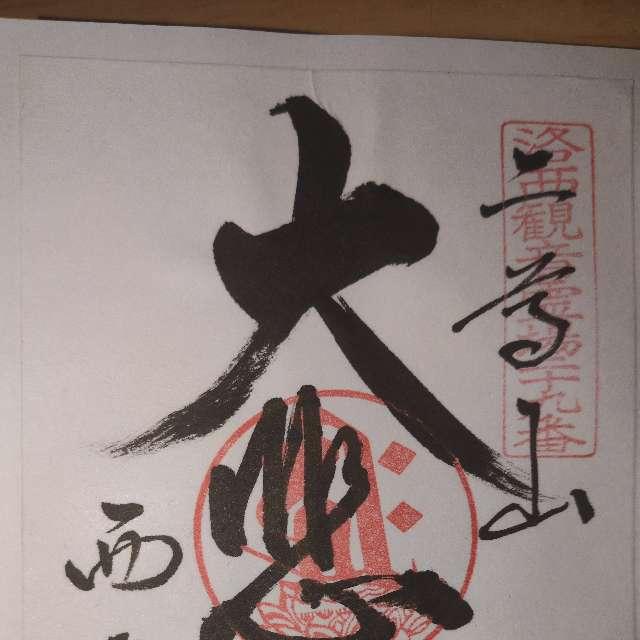 洛西観音霊場十九番
二尊山
大悲
西